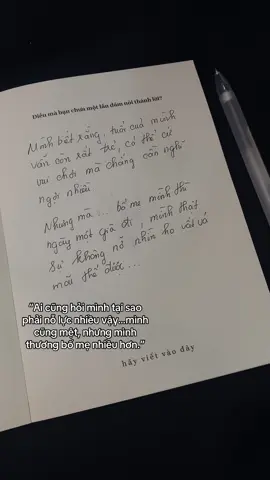 Điều mà bạn chưa một lần dám nói thành lời?
Mình biết rằng, tuổi của mình
vẫn còn rất trẻ, có thể cứ
vui chơi mà chẳng cần nghĩ
ngợi nhiều
Nhưng mà... bố mẹ mình thì
ngày một già đi, mình thật
sự không nỡ nhìn họ vất vả
mãi thế được...
“Ai cũng hỏi mình tại sao
phải nỗ lực nhiều vậy...mình
cũng mệt, nhưng mình
thương bố mẹ nhiều hơn.”
hãy viết vào đây